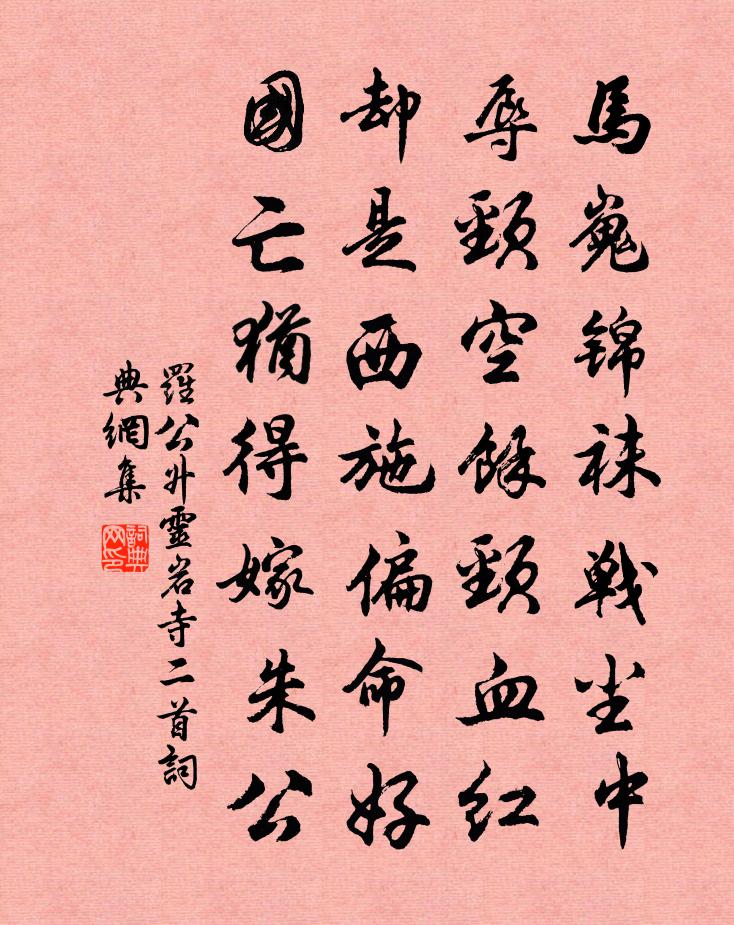 馬嵬锦袜戰尘中
辱頸空餘頸血紅
却是西施偏命好
國亡猶得嫁朱公
羅公升靈岩寺二首詞
典網集
詞典網印